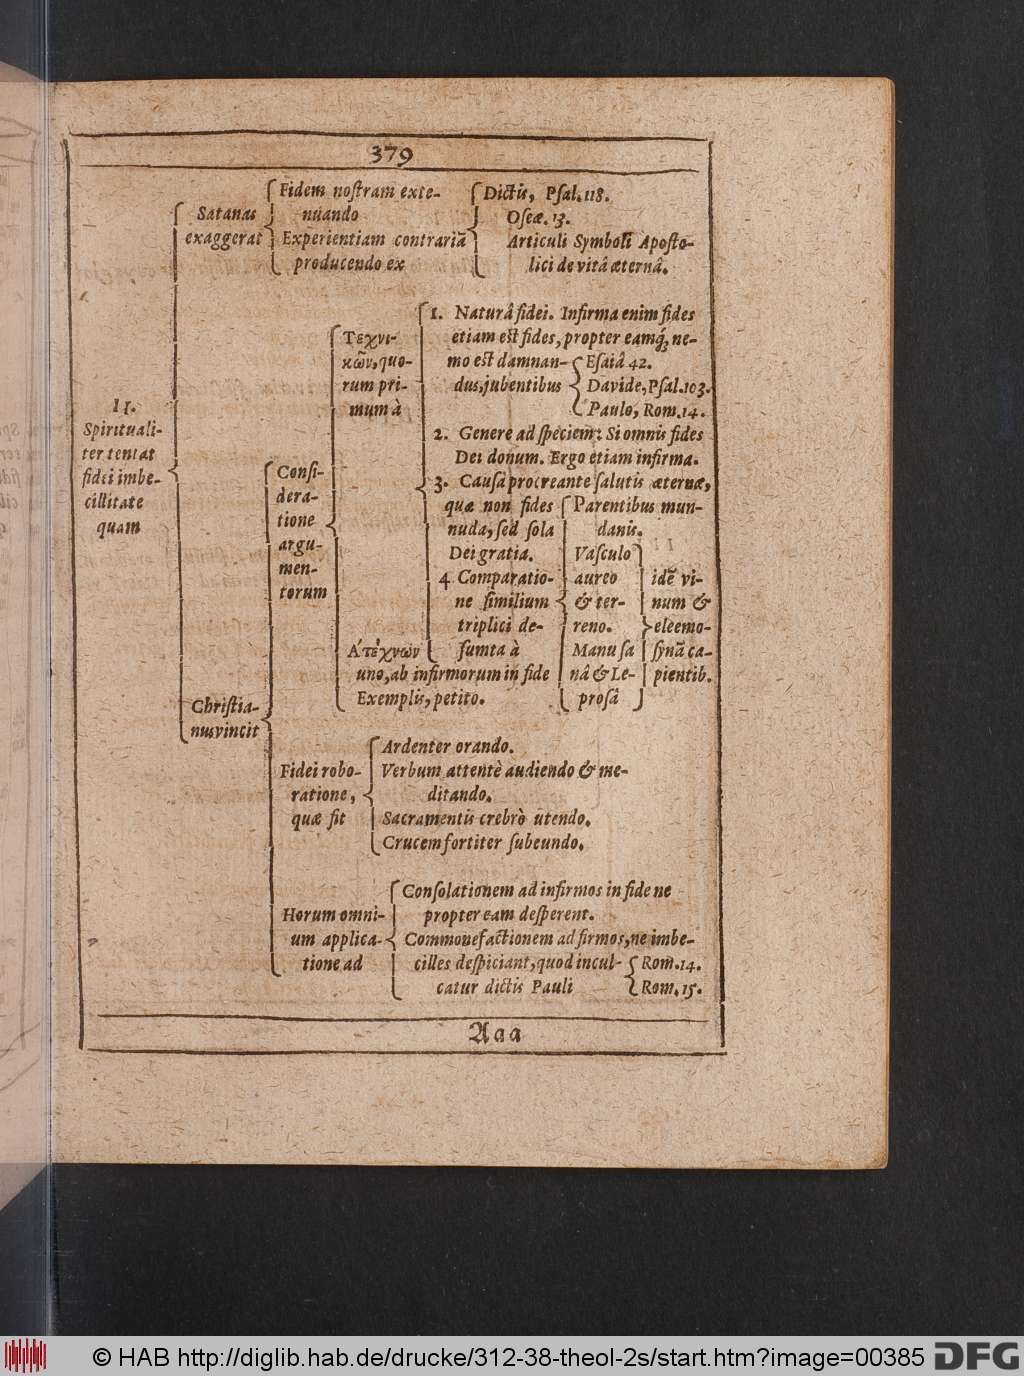 379
Satanas
exaggerat
Fidem noſtram exte-
nuando
Experientiam contrariā
producendo ex
Dictis, Pſal. 118.
Oſeæ. 13.
Articuli Symboli Apoſto-
lici de vitâ æternâ.
II.
Spirituali-
ter tentat
fidei imbe-
cillitate
quam
Chriſtia-
nus vincit
Conſi-
dera-
tione
argu-
men-
torum
Τεχνι-
κῶν, quo-
rum pri-
mum à
1. Naturâ fidei. Infirma enim fides
etiam eſt fides, propter eamq́; ne-
mo eſt damnan-
dus, jubentibus
Eſaiâ 42.
Davide, Pſal. 103.
Paulo, Rom. 14.
2. Genere ad ſpeciem: Si omnis fides
Dei donum. Ergo etiam infirma.
3. Cauſa procreante ſalutis æternæ,
quæ non fides
nuda, ſed ſola
Dei gratia.
4 Comparatio-
ne ſimilium
triplici de-
ſumta à
Parentibus mun-
danis.
Vaſculo
aureo
& ter-
reno.
Manu ſa
nâ & Le-
proſâ
idē vi-
num &
eleemo-
ſynā ca-
pientib.
Ἀτέχνων
uno, ab infirmorum in fide
Exemplis, petito.
Fidei robo-
ratione,
quæ fit
Ardenter orando.
Verbum attentè audiendo & me-
ditando.
Sacramentis crebrò utendo.
Crucem fortiter ſubeundo.
Horum omni-
um applica-
tione ad
Conſolationem ad infirmos in fide ne
propter eam deſperent.
Commonefactionem ad firmos, ne imbe-
cilles deſpiciant, quod incul-
catur dictis Pauli
Rom. 14.
Rom. 15.
Aaa
© HAB http://diglib.hab.de/drucke/312-38-theol-2s/start.htm?image=00385
DFG